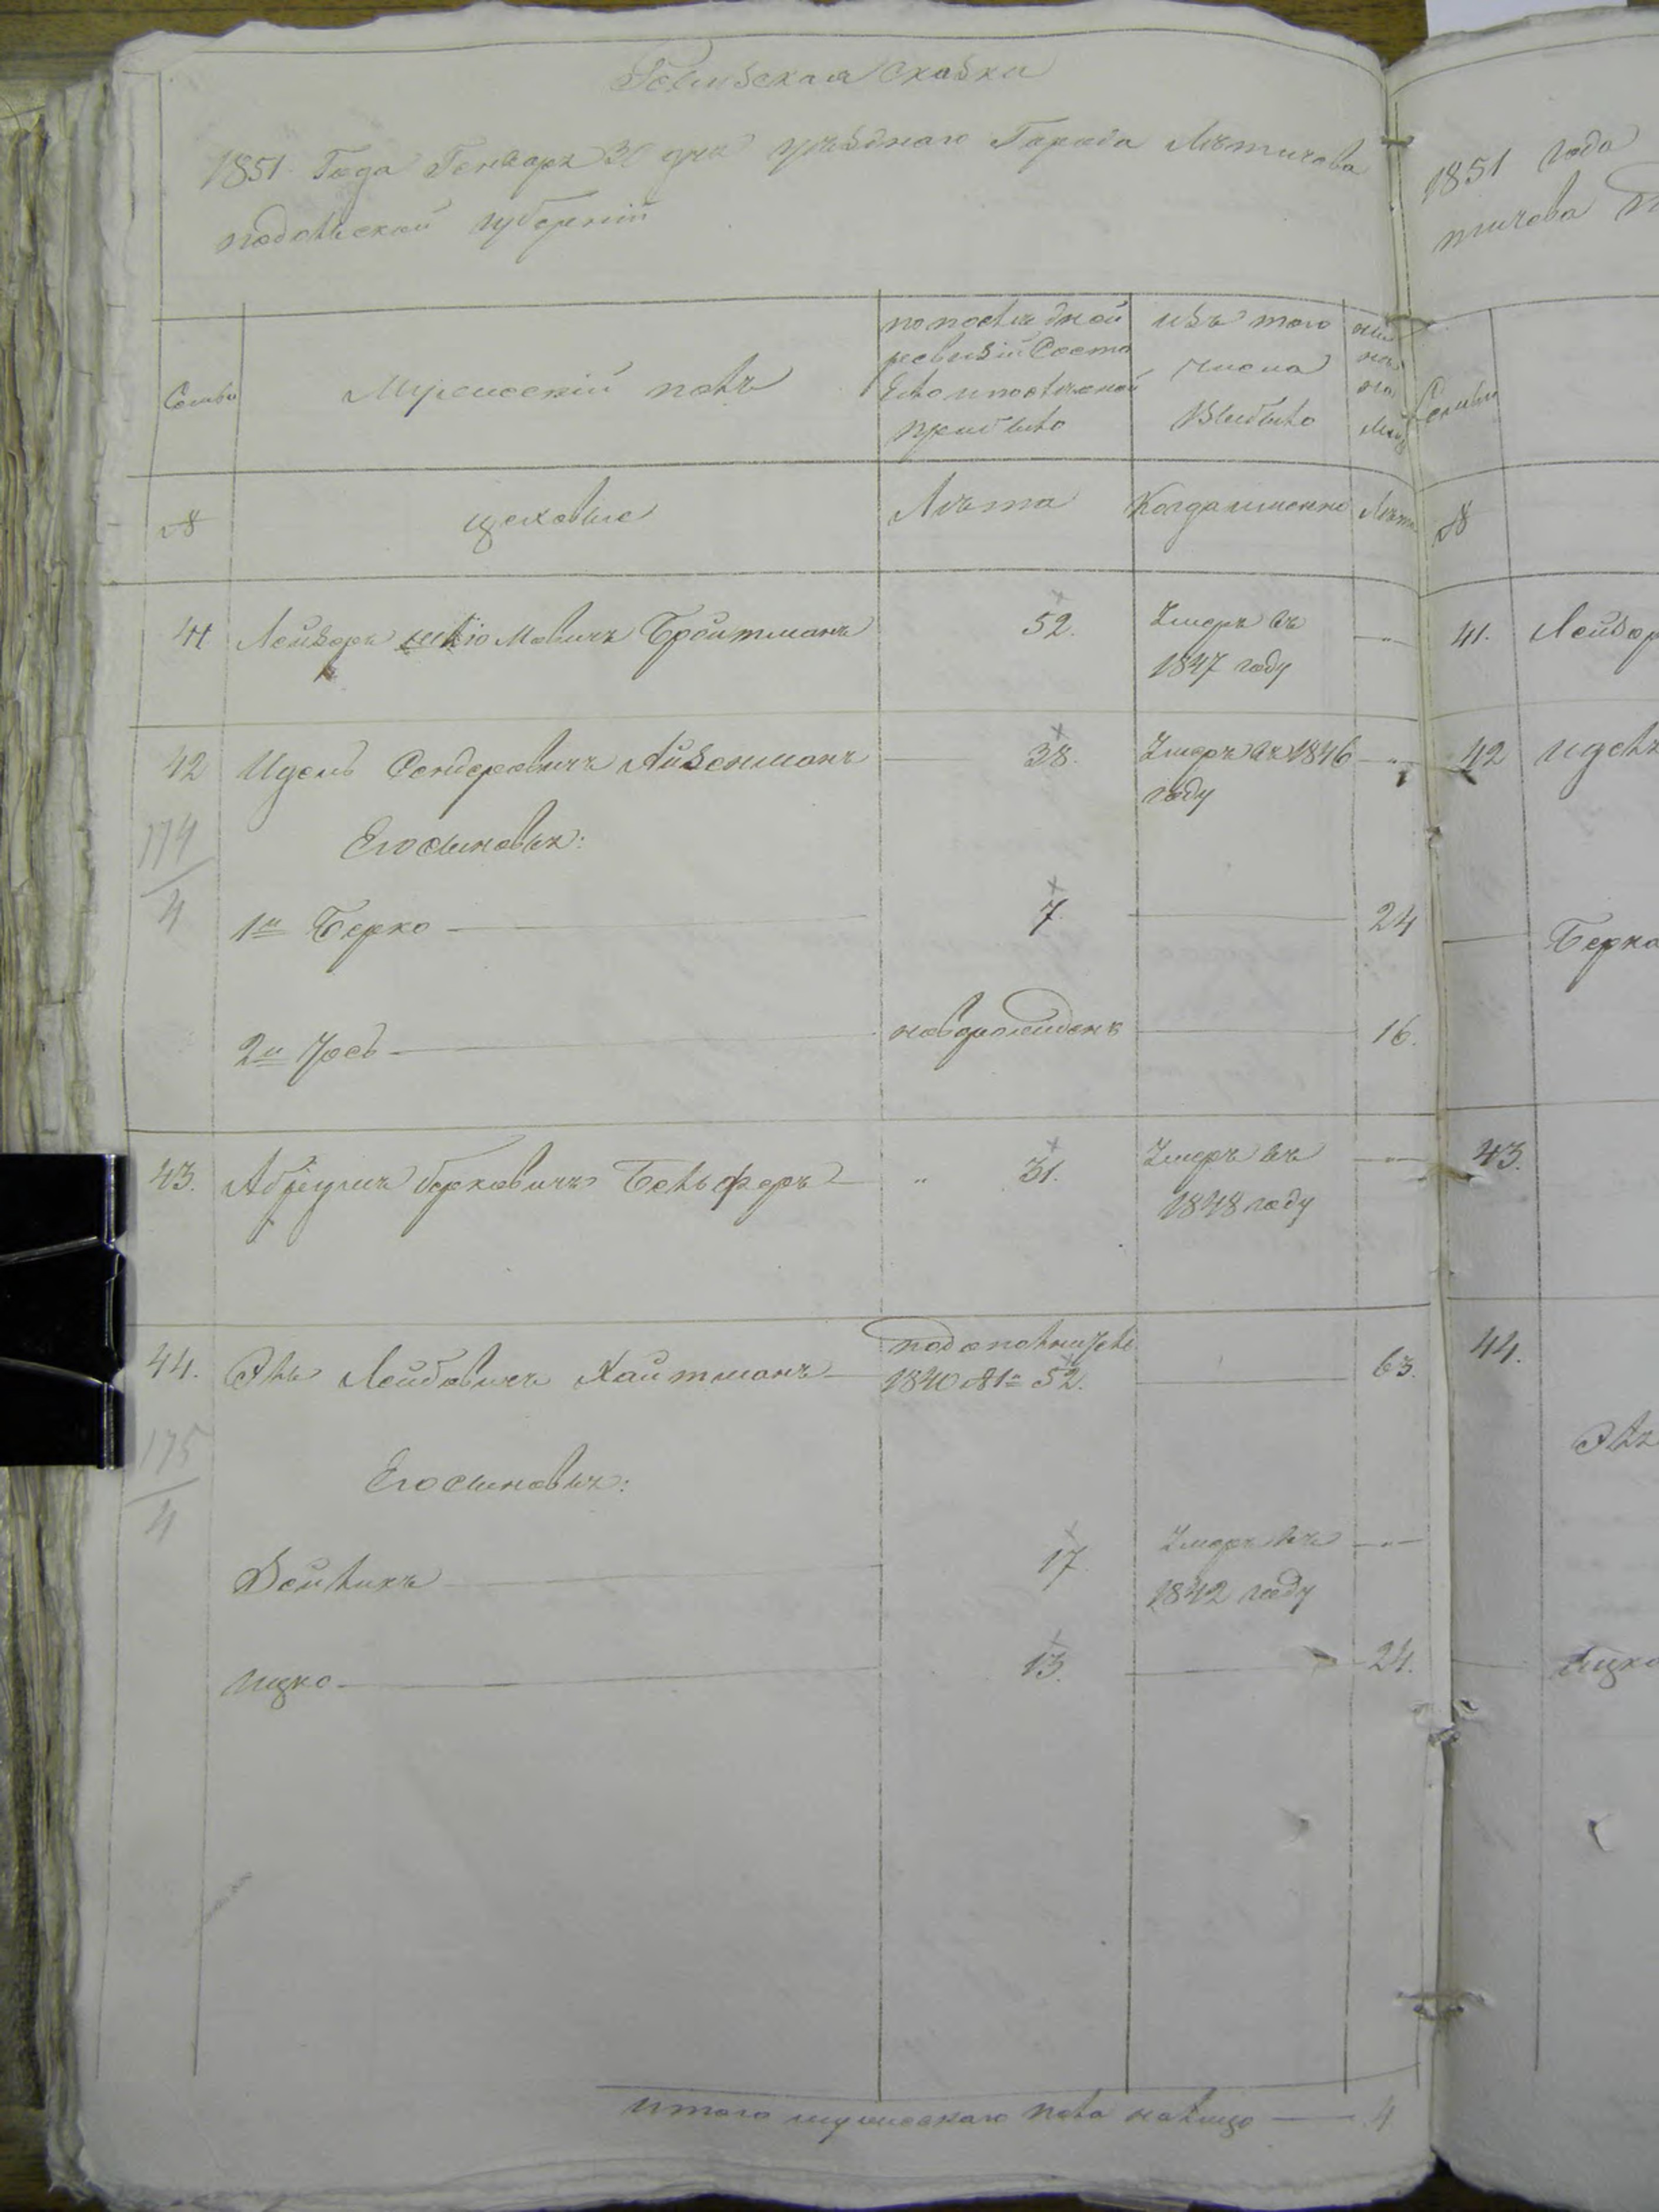 Ревизская Сказка
1851 Года Генваря 30 дня уѣзднаго Города Лѣтичева
подольской губерній
Семьи
Мужескій полъ
по послѣдной
ревизіи Состо
яло и послѣ оной
прибыло
изъ того
числа
Выбыло
№
цеховые
Лѣта
Когда именно
Лѣта
41 Лейзоръ Мовичъ Бройтманъ 52. Умеръ въ
1847 году
42 Идель Сендеровичъ Айзенманъ 38. Умеръ въ 1846
году
Его сыновья:
174
4
1й Берко 7. 24
2й Іось новорожденъ 16.
43. Абрумъ Берковичъ Бельферъ „ 31. Умеръ въ
1848 году
44. Эль Лейбовичъ Хайтманъ 63.
1840 №1й 52.
175
4
Его сыновья:
17 Умеръ въ
1842 году
Ицко 13. 24.
итого мужескаго пола налицо 4
1851 года
тичева
Семьи
№
41. Лейзор
42 Идель
Берко
43.
44.
Эль
Ицко